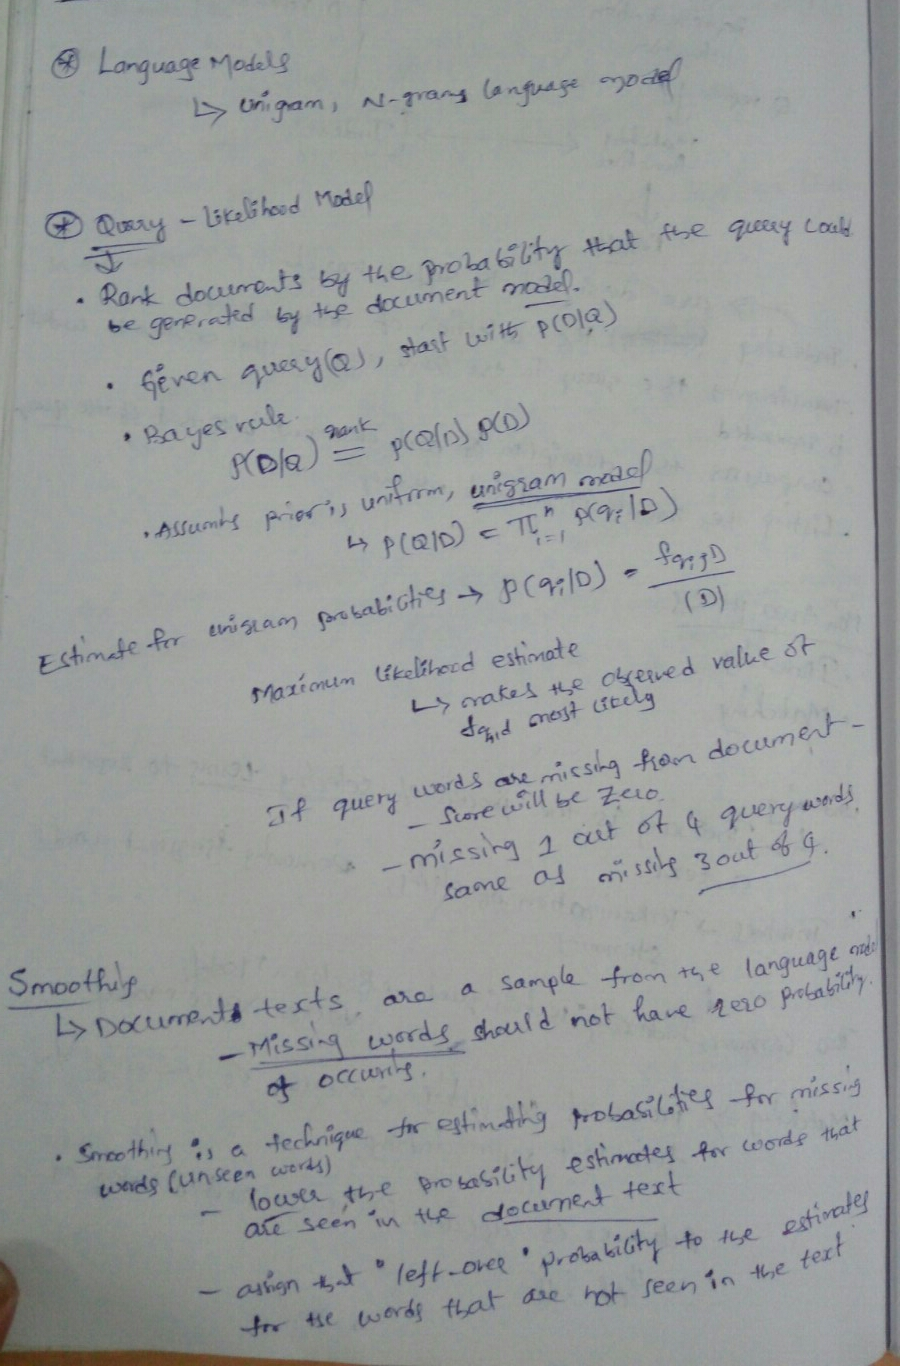 ⊛ Language Models
↳ Unigram, N-grams language model
⊛ Query - Likelihood Model
• Rank documents by the probability that the query could
be generated by the document model.
• Given query(Q), start with P(D|Q)
• Bayes rule.
P(D|Q) rank = P(Q|D) P(D)
• Assumes prior is uniform, unigram model
↳ P(Q|D) = π^n_{i=1} P(q_i|D)
Estimate for unigram probabilities → P(q_i|D) = f_{q_i,D} / |D|
Maximum likelihood estimate
↳ makes the observed value of
f_{q_i,d} most likely
If query words are missing from document -
- Score will be Zero.
- missing 1 out of 4 query words
same as missing 3 out of 4.
Smoothing
↳ Documents texts are a sample from the language model
- Missing words should not have zero probability.
of occuring.
• Smoothing is a technique for estimating probabilities for missing
words (unseen words)
- lower the probability estimates for words that
are seen in the document text
- assign that "left-over" probability to the estimates
for the words that are not seen in the text